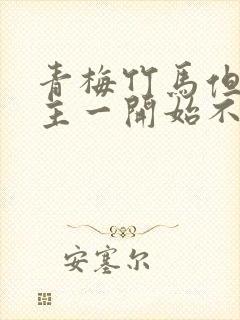 青梅竹馬但
主一開始不
安塞尔